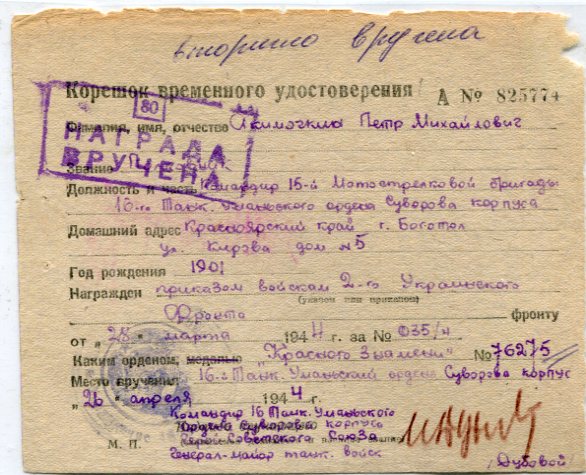 вторично вручена
Корешок временного удостоверения
А № 825774
80
НАГРАДА
ВРУЧЕНА
Фамилия, имя, отчество Петр Михайлович
Звание
Должность и часть Командир 15-й Мотострелковой бригады
16-го Танк. Уманьского ордена Суворова корпуса
Домашний адрес Красноярский край г. Боготол
ул. Кирова дом №5
Год рождения 1901
Награжден приказом войскам 2-го Украинского
(указом или приказом)
Фронта фронту
от „28" марта 1944 г. за № 035/н
Каким орденом, медалью „Красного Знамени" № 76275
Место вручения 16-й Танк. Уманьский ордена Суворова корпус
„26" апреля 1944 г.
Командир 16 Танк. Уманьского
Ордена Суворова корпуса
Герой Советского Союза
М. П. Генерал-майор танк. войск
/Дубовой/